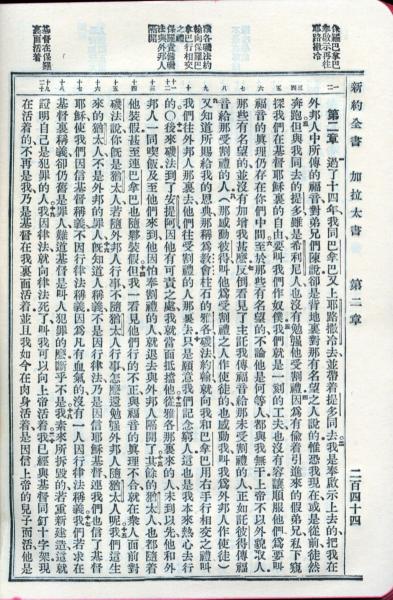 新約全書 加拉太書 第二章 二百四十四
保羅巴拿巴
奉啟示再往
耶路撒冷
雅各磯法約
翰向保羅巴
拿巴行相交
之禮
保羅責備磯
法與外邦人
隔開
基督在保羅
裏面活着
第二章 過了十四年我同巴拿巴又上耶路撒冷去並帶着提多同去我是奉啟示上去的把我在
外邦人中所傳的福音對弟兄們陳說卻是背地裏對那有名望之人說的惟恐我現在或是從前徒然
奔跑但與我同去的提多雖是希利尼人也沒有勉強他受割禮因爲有偷着引進來的假弟兄私下窺
探我們在基督耶穌裏的自由要叫我們作奴僕我們就是一刻的工夫也沒有容讓順服他們爲要叫
福音的眞理仍存在你們中間至於那些有名望的不論他是何等人都與我無干上帝不以外貌取人
那些有名望的並沒有加增我甚麽反倒看見了主託我傳福音給那未受割禮的人正如託彼得傳福
音給那受割禮的人（那感動彼得叫他爲受割禮之人作使徒的也感動我叫我爲外邦人作使徒）
又知道所賜給我的恩典那稱爲教會柱石的雅各磯法約翰就向我和巴拿巴用右手行相交之禮叫
我們往外邦人那裏去他們往受割禮的人那裏去只是願意我們記念窮人這也是我本來熱心去行
的〇後來磯法到了安提阿因他有可責之處我就當面抵擋他從雅各那裏來的人未到以先他和外
邦人一同喫飯及至他們來到他因怕奉割禮的人就退去與外邦人隔開了其餘的猶太人也都隨着
他裝假甚至連巴拿巴也隨夥裝假但我一看見他們行的不正與福音的眞理不合就在衆人面前對
磯法說你旣是猶太人若隨外邦人行事不隨猶太人行事怎麽還勉強外邦人隨猶太人呢我們這生
來的猶太人不是外邦的罪人旣知道人稱義不是因行律法乃是因信耶穌基督連我們也信了基督
耶穌使我們因信基督稱義不因行律法稱義因爲凡有血氣的沒有一人因行律法稱義我們若求在
基督裏稱義卻仍舊是罪人難道基督是叫人犯罪的麽斷乎不是我素來所拆毀的若重新建造這就
證明自己是犯罪的人我因律法就向律法死了叫我可以向上帝活着我已經與基督同釘十字架現
在活着的不再是我乃是基督在我裏面活着並且我如今在肉身活着是因信上帝的兒子而活他是